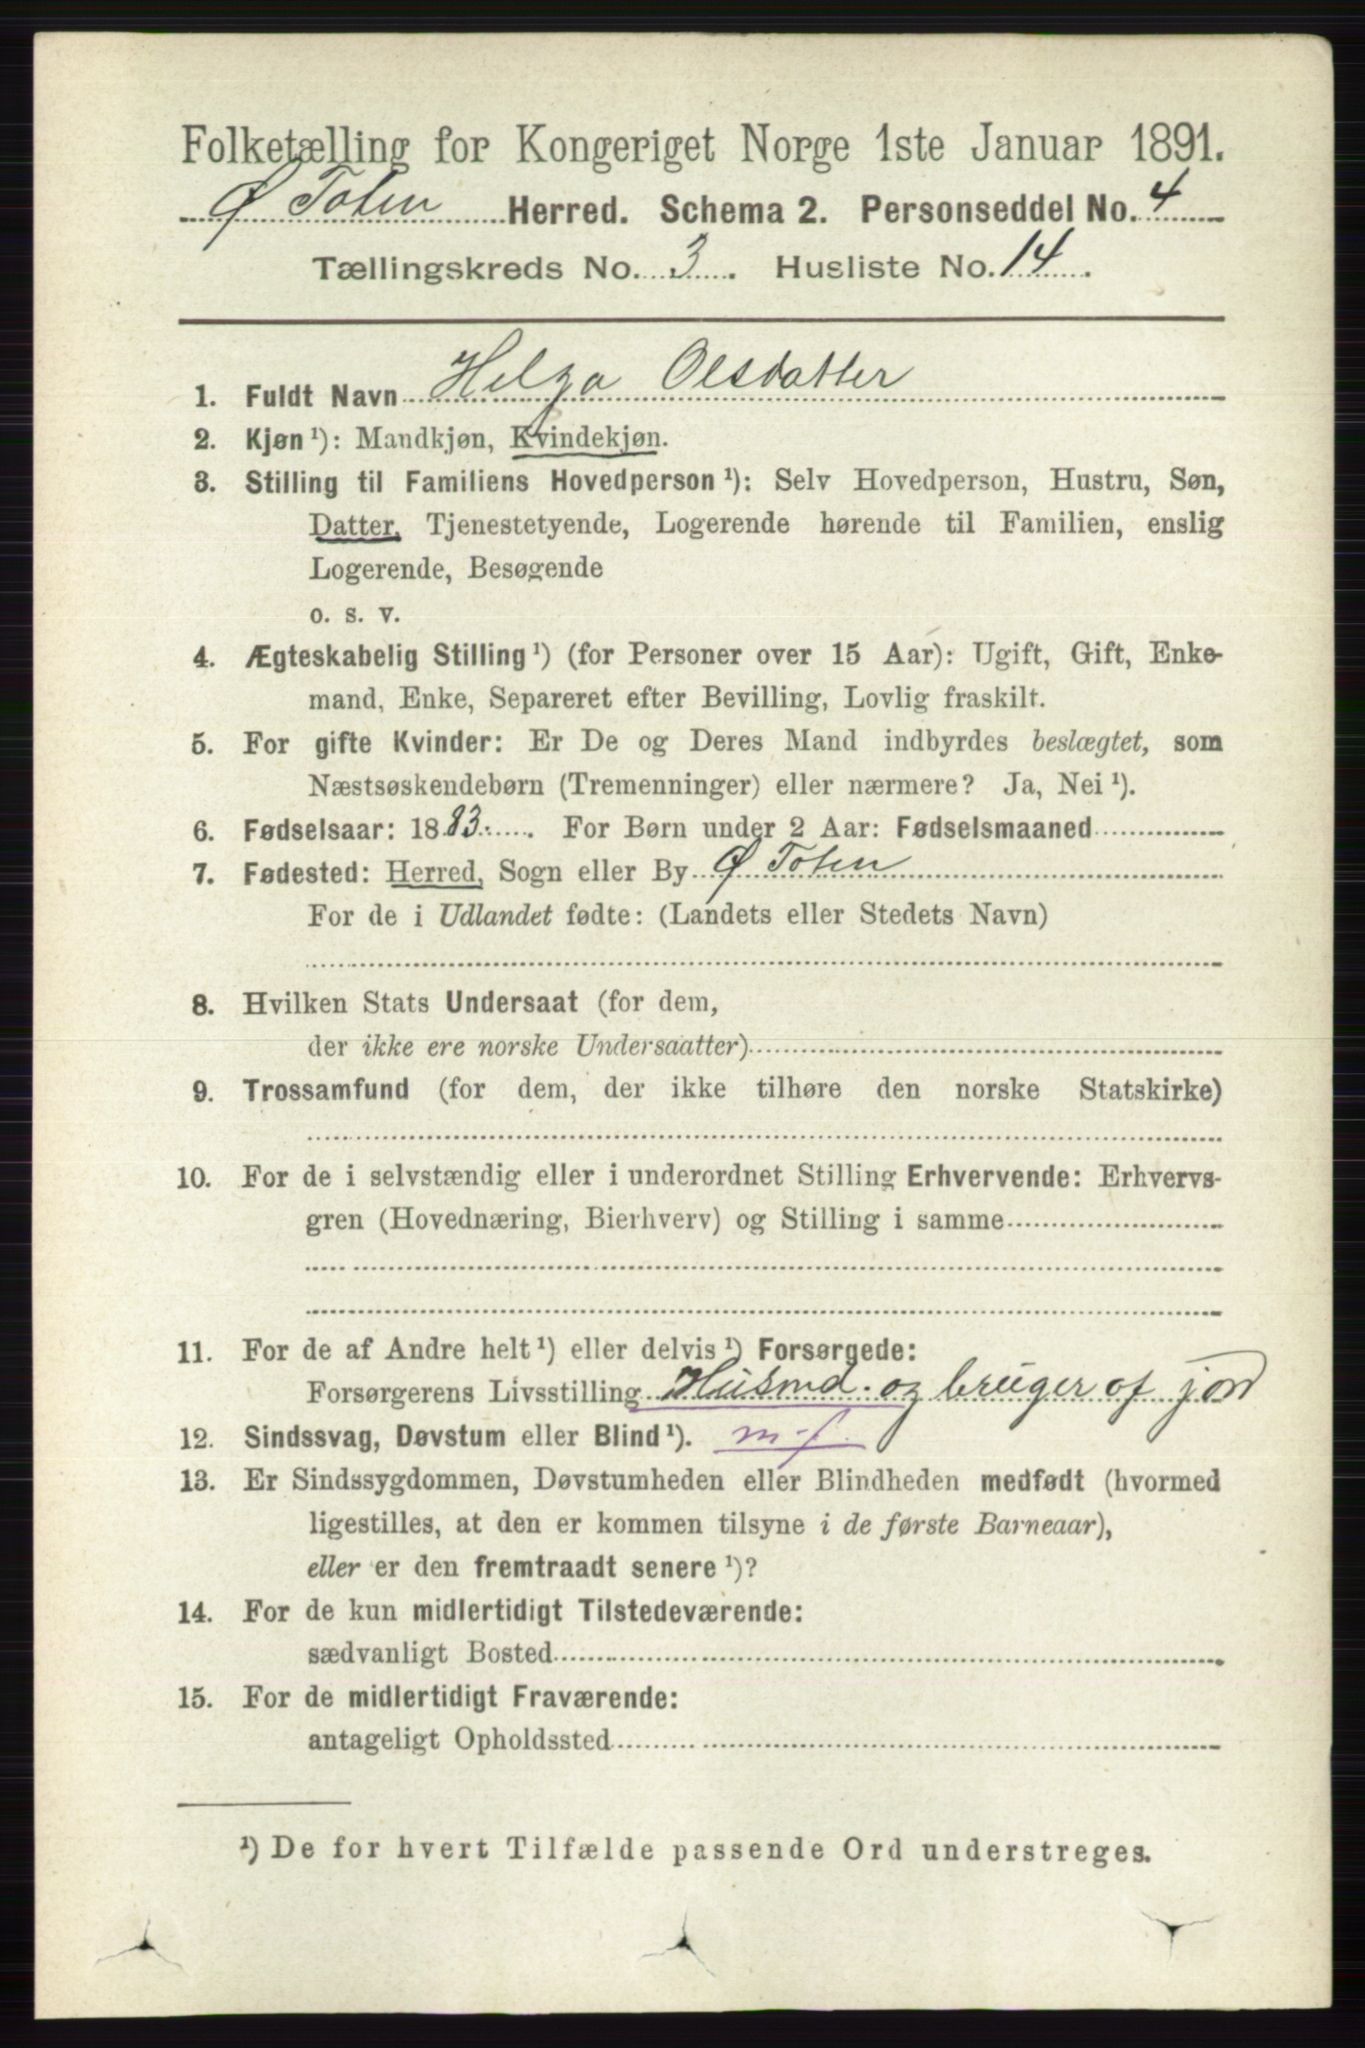 Folketælling for Kongeriget Norge 1ste Januar 1891.
Ø Toten Herred. Schema 2. Personseddel No. 4
Tællingskreds No. 3. Husliste No. 14.
1. Fuldt Navn Helga Olsdatter
2. Kjøn¹): Mandkjøn, Kvindekjøn.
3. Stilling til Familiens Hovedperson¹): Selv Hovedperson, Hustru, Søn,
Datter, Tjenestetyende, Logerende hørende til Familien, enslig
Logerende, Besøgende
o. s. v.
4. Ægteskabelig Stilling¹) (for Personer over 15 Aar): Ugift, Gift, Enke-
mand, Enke, Separeret efter Bevilling, Lovlig fraskilt.
5. For gifte Kvinder: Er De og Deres Mand indbyrdes beslægtet, som
Næstsøskendebørn (Tremenninger) eller nærmere? Ja, Nei¹).
6. Fødselsaar: 1883. For Børn under 2 Aar: Fødselsmaaned
7. Fødested: Herred, Sogn eller By Ø Toten
For de i Udlandet fødte: (Landets eller Stedets Navn)
8. Hvilken Stats Undersaat (for dem,
der ikke ere norske Undersaatter)
9. Trossamfund (for dem, der ikke tilhøre den norske Statskirke)
10. For de i selvstændig eller i underordnet Stilling Erhvervende: Erhvervs-
gren (Hovednæring, Bierhverv) og Stilling i samme
11. For de af Andre helt¹) eller delvis¹) Forsørgede:
Forsørgerens Livsstilling Husmd. og bruger af jord
12. Sindssvag, Døvstum eller Blind¹). m-f.
13. Er Sindssygdommen, Døvstumheden eller Blindheden medfødt (hvormed
ligestilles, at den er kommen tilsyne i de første Barneaar),
eller er den fremtraadt senere¹)?
14. For de kun midlertidigt Tilstedeværende:
sædvanligt Bosted
15. For de midlertidigt Fraværende:
antageligt Opholdssted
¹) De for hvert Tilfælde passende Ord understreges.